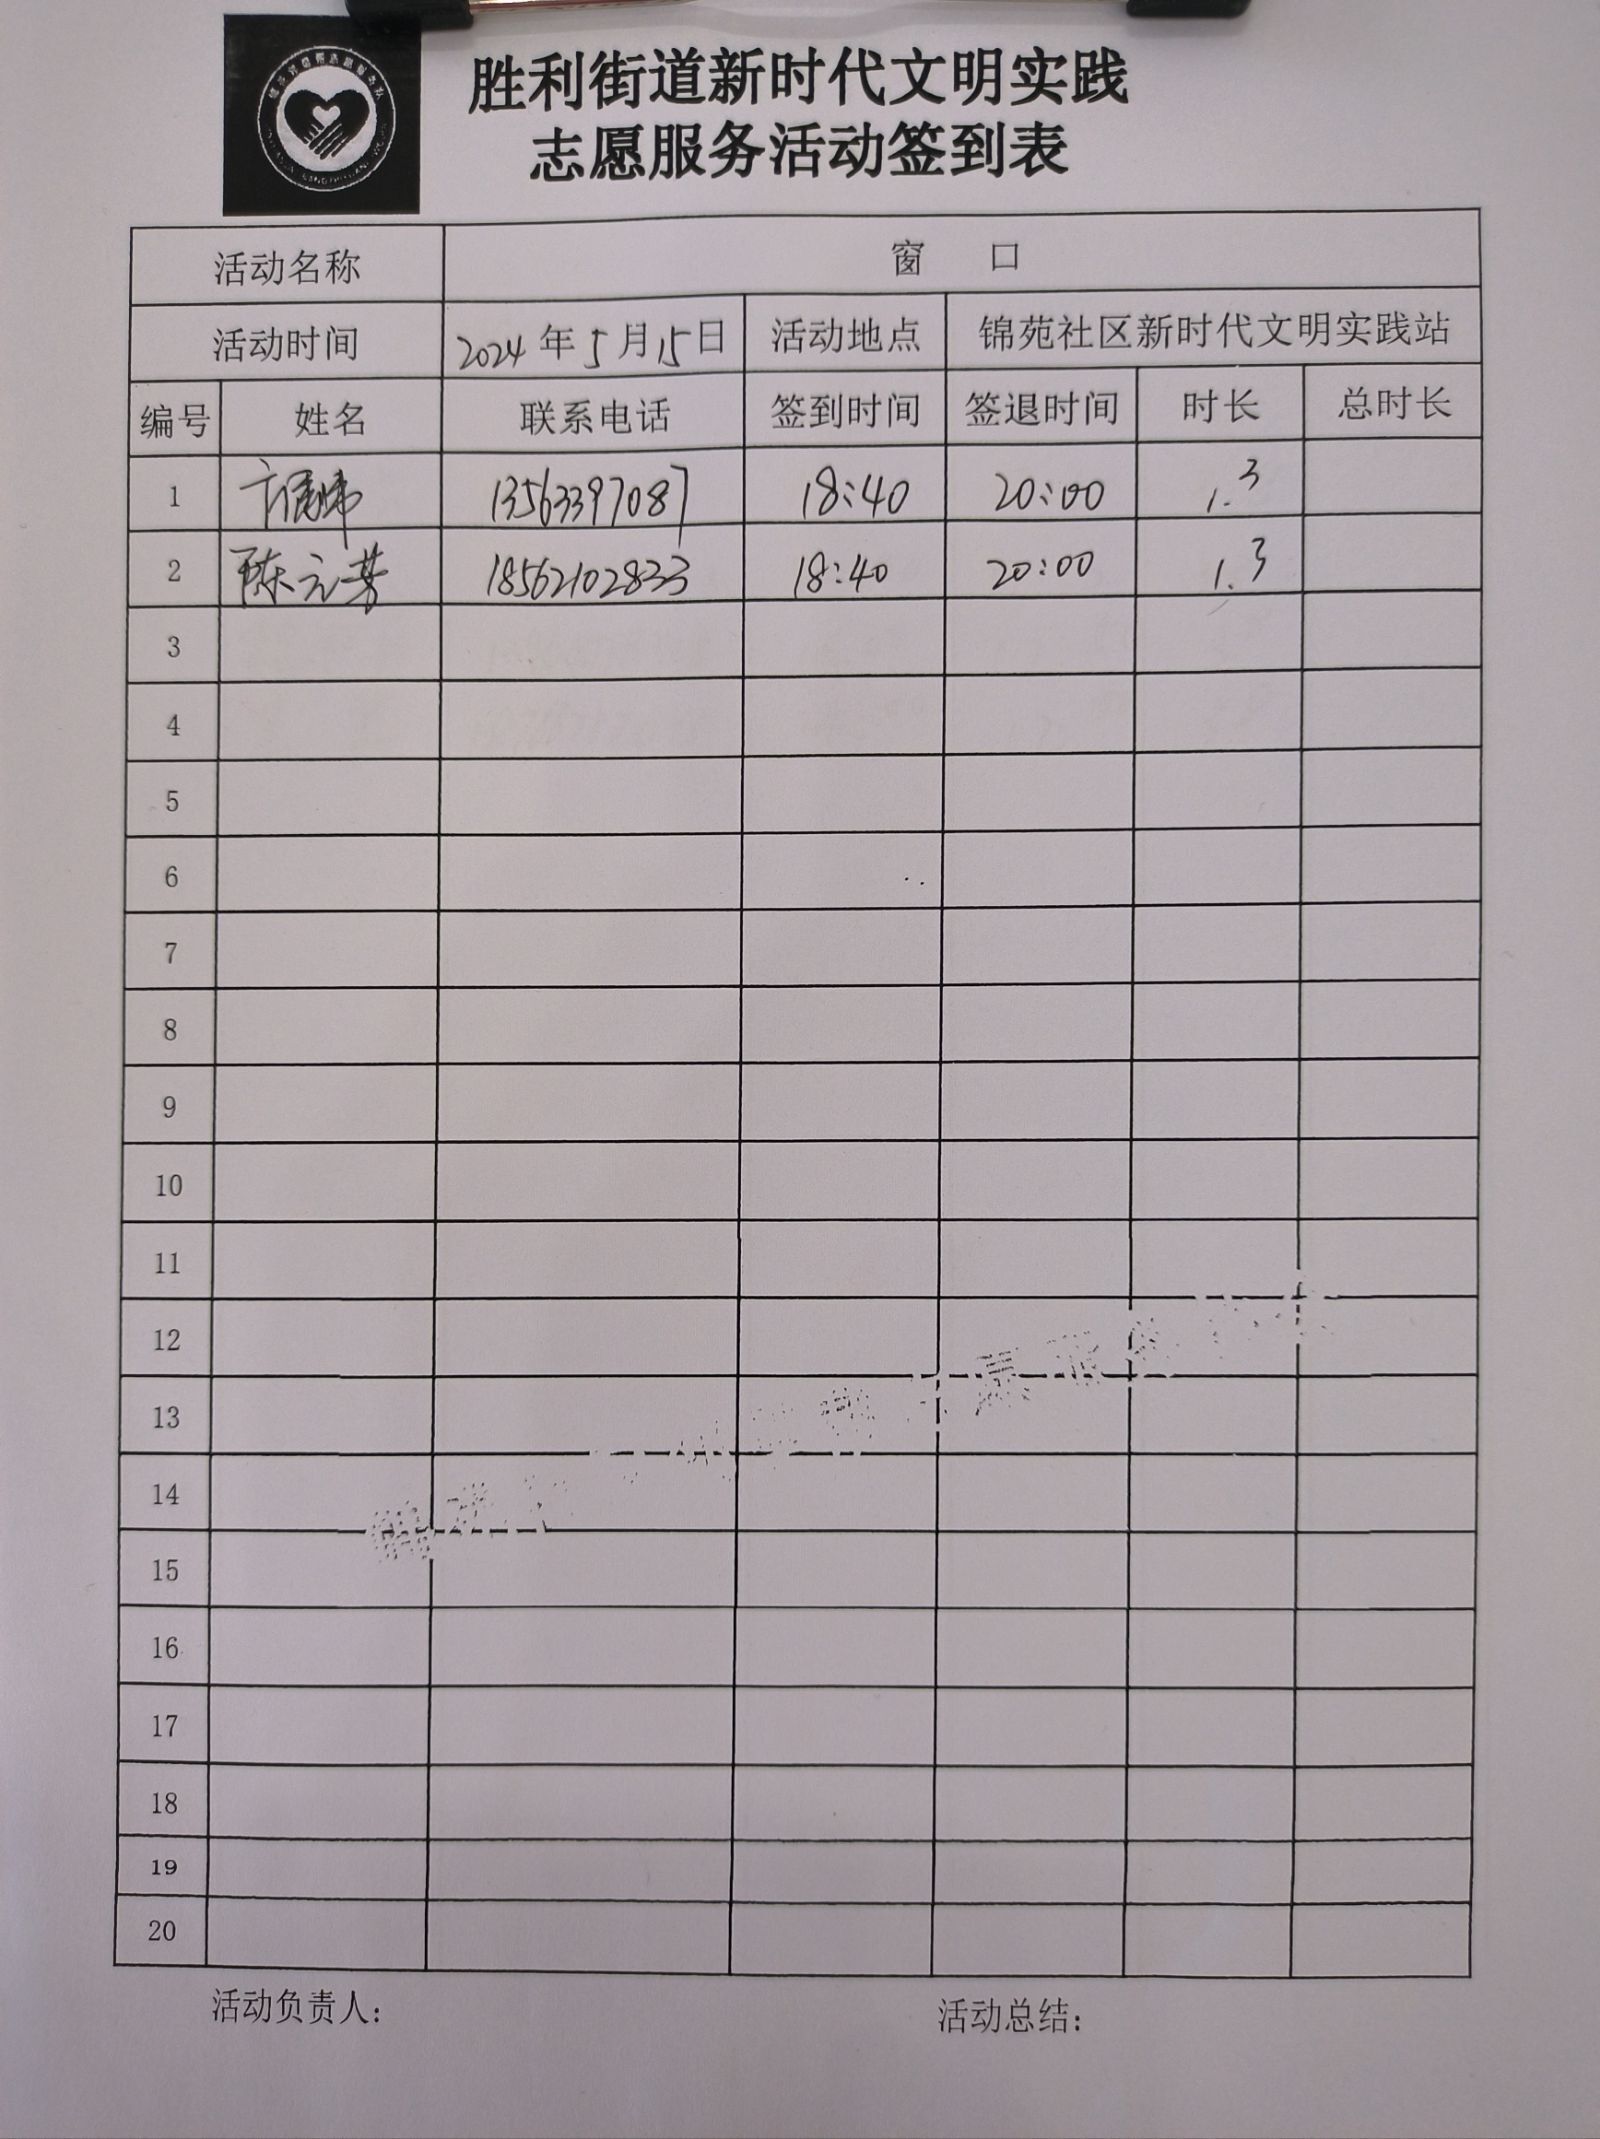 胜利街道新时代文明实践
志愿服务活动签到表
活动名称 窗 口
活动时间 2024年5月15日 活动地点 锦苑社区新时代文明实践站
编号 姓名 联系电话 签到时间 签退时间 时长 总时长
1 13563397087 18:40 20:00 1.3
2 陈元芳 18562102833 18:40 20:00 1.3
3
4
5
6
7
8
9
10
11
12
13
14
15
16
17
18
19
20
活动负责人: 活动总结: